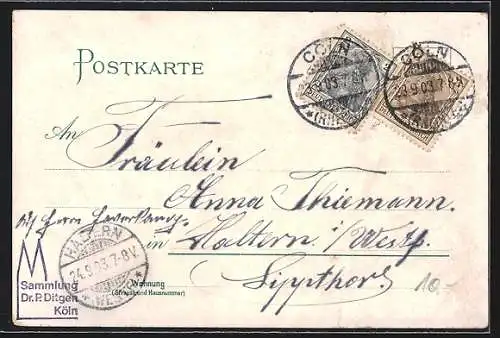 POSTKARTE
CÖLN
24.9.03.7-8V.
*(RHEIN)
CÖLN
24.9.03.7-8V.
An
Fräulein
Anna Thiemann.
Herrn
in Haltern i/Westf.
Lippthor
10.-
HALTERN
24.9.03.7-8V.
*(WESTF.)*
Wohnung
(Straße und Hausnummer)
M
Sammlung
Dr. P. Ditgen
Köln